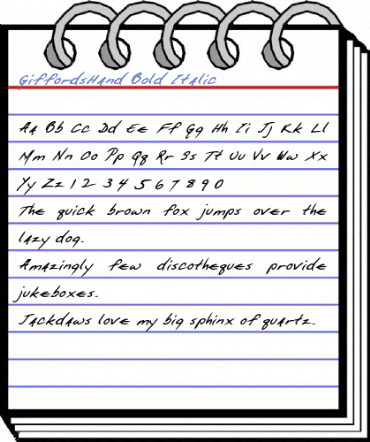 GiffordsHand Bold Italic
Aa Bb Cc Dd Ee Ff Gg Hh Ii Jj Kk Ll
Mm Nn Oo Pp Qq Rr Ss Tt Uu Vv Ww Xx
Yy Zz 1 2 3 4 5 6 7 8 9 0
The quick brown fox jumps over the
lazy dog.
Amazingly few discotheques provide
jukeboxes.
Jackdaws love my big sphinx of quartz.